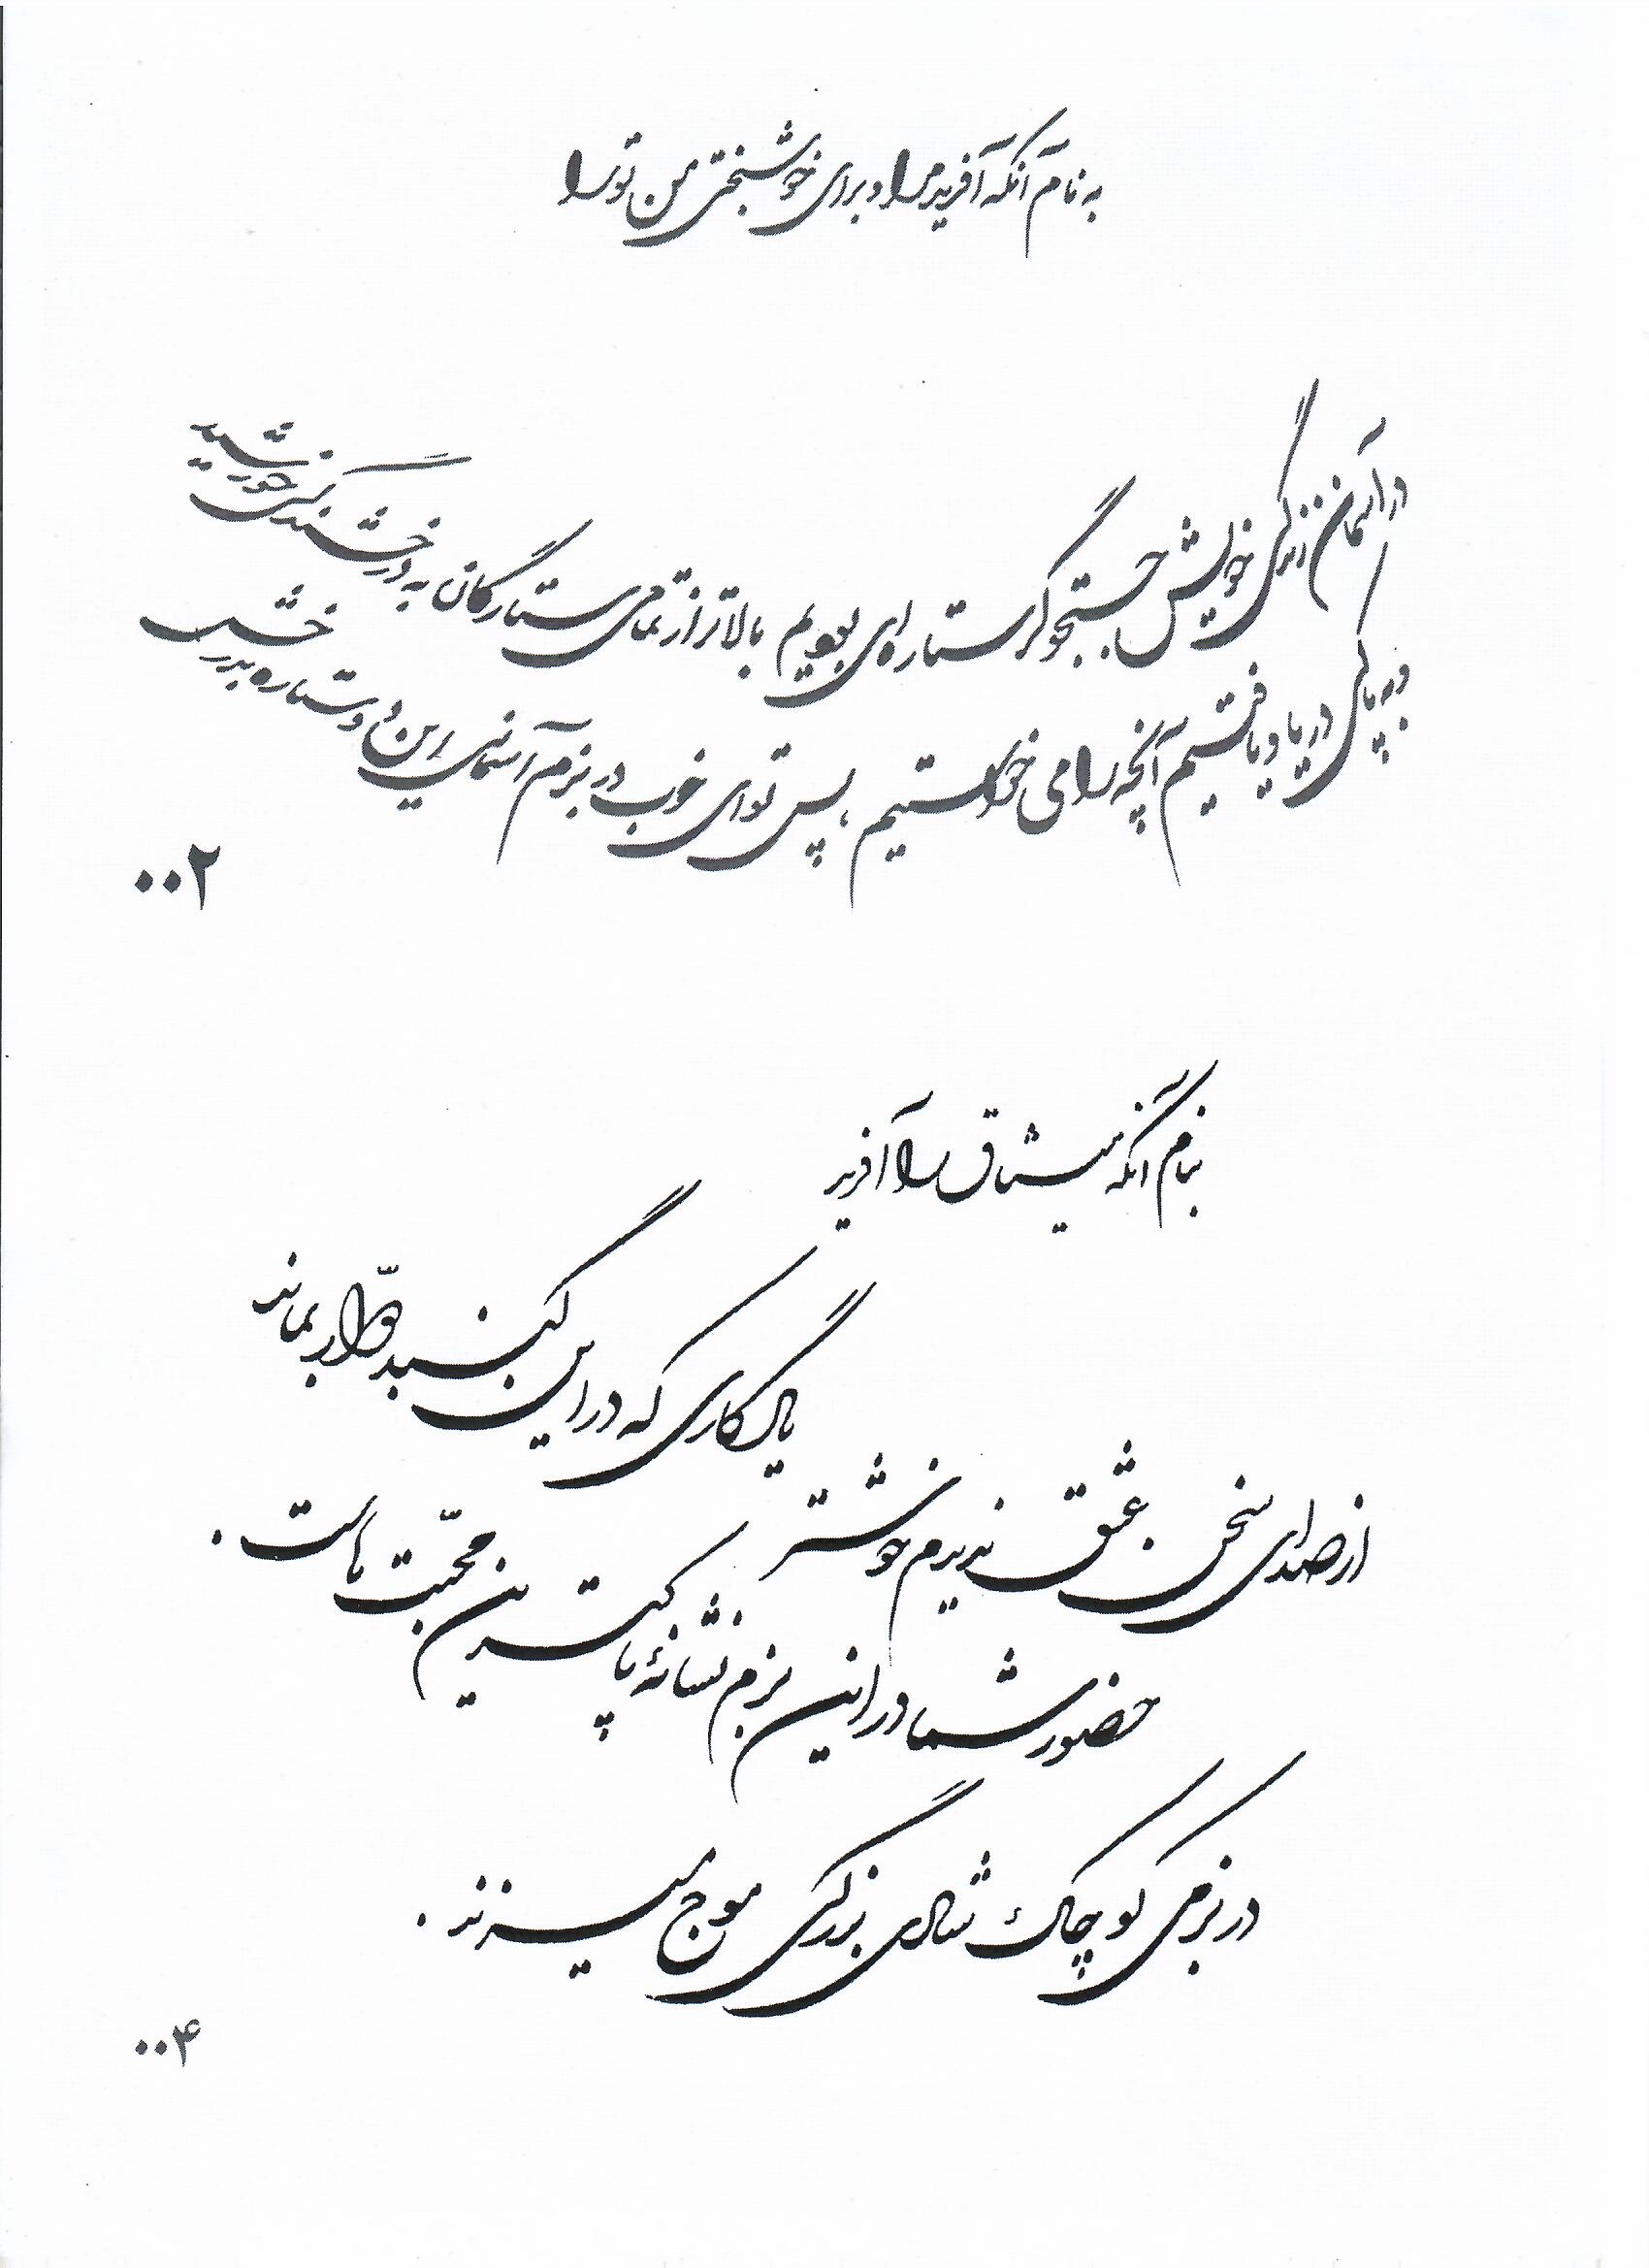 به نام آنکه آفرید مرا و برای خوشبختی من تو را
در آسمان زندگی خویش جستجوگر ستاره‌ای بودیم بالاتر از تمامی ستارگان به درخشندگی خورشید
و به پاکی دریا و یافتیم آنچه را می خواستیم، پس تو ای خوب در بزم آسمانی این دو ستاره بدرخش
۰۰۲
بنام آنکه میثاق را آفرید
از صدای سخن عشق ندیدم خوشتر
یادگاری که در این گنبد دوّار بماند
حضور شما در این بزم نشانهٔ پاکترین محبّت هاست.
در بزمی کوچک شادی بزرگی موج میزند.
۰۰۴